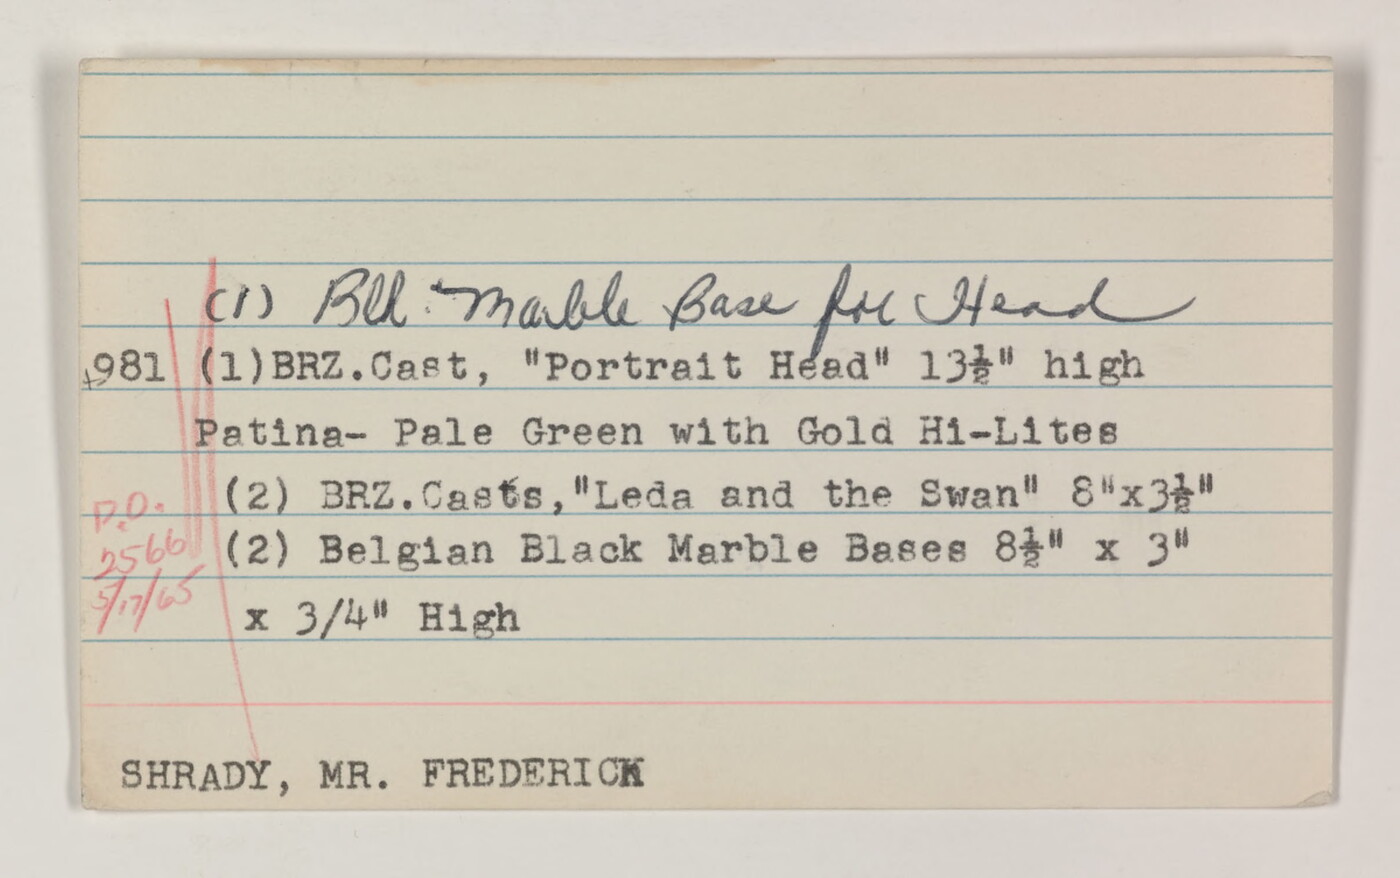 (1) Blk. Marble Base for Head
981 (1)BRZ.Cast, "Portrait Head" 13½" high
Patina- Pale Green with Gold Hi-Lites
(2) BRZ.Casts,"Leda and the Swan" 8"x3½"
P.O.
2566
(2) Belgian Black Marble Bases 8½" x 3"
5/17/65
x 3/4" High
SHRADY, MR. FREDERICK